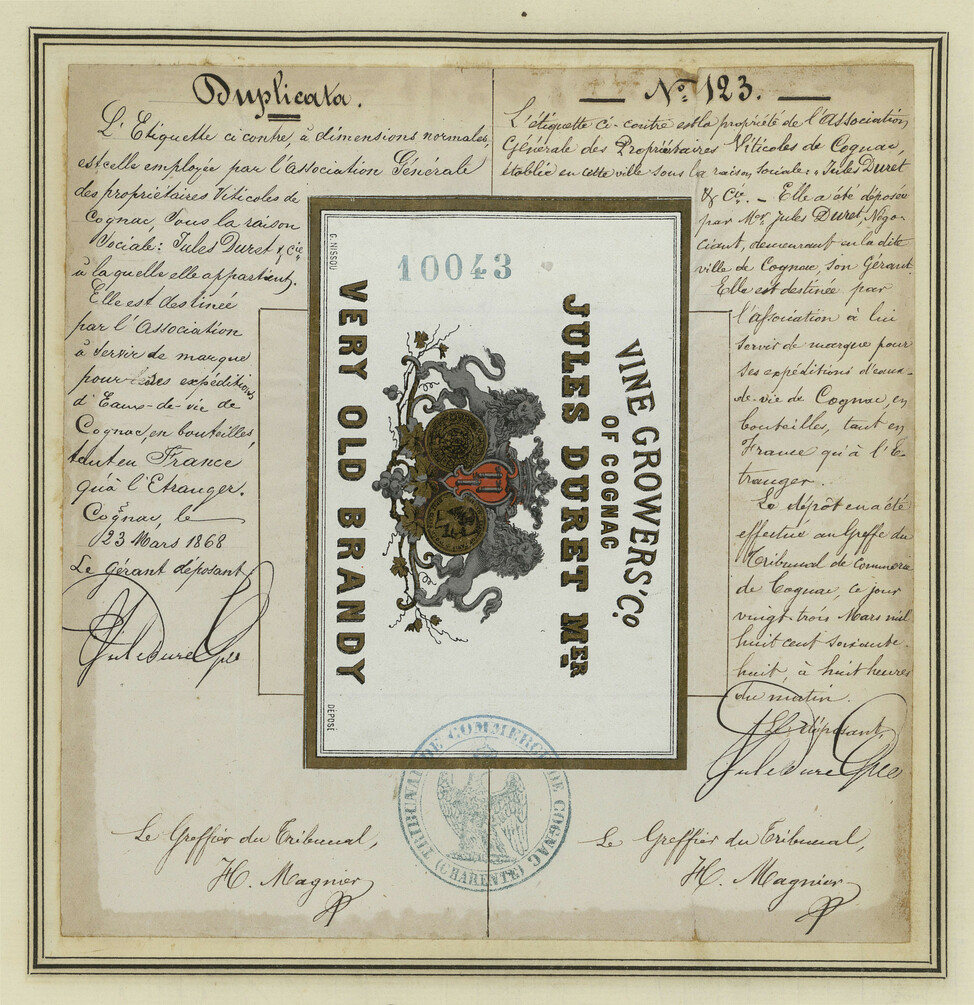 Duplicata.
L'Etiquette ci contre, à dimensions normales,
est celle employée par l'Association Générale
des propriétaires Viticoles de
Cognac, sous la raison
Sociale: Jules Duret & Cie
à laquelle elle appartient.
Elle est destinée
par l'Association
à servir de marque
pour ses expéditions
d'Eaux-de-vie de
Cognac, en bouteilles,
tant en France
qu'à l'Etranger.
Cognac, le
23 Mars 1868
Le gérant déposant
Jules Duret & Cie
No. 123.
L'étiquette ci-contre est la propriété de l'Association
Générale des Propriétaires Viticoles de Cognac,
établie en cette ville sous la raison sociale: "Jules Duret
& Cie. - Elle a été déposée
par Mor Jules Duret, Négo-
ciant, demeurant en la dite
ville de Cognac, son Gérant.
Elle est destinée par
l'association à lui
servir de marque pour
ses expéditions d'eaux-
de-vie de Cognac, en
bouteilles, tant en
France qu'à l'E-
tranger.
Le dépôt en a été
effectué au Greffe du
Tribunal de Commerce
de Cognac, ce jour
vingt-trois Mars mil
huit cent soixante-
huit, à huit heures
du matin.
Le déposant,
Jules Duret & Cie
10043
VINE GROWERS' Co.
OF COGNAC
JULES DURET MER
VERY OLD BRANDY
G. NISSOU
DÉPOSÉ
TRIBUNAL DE COMMERCE DE COGNAC
(CHARENTE)
Le Greffier du Tribunal,
H. Magnier
Le Greffier du Tribunal,
H. Magnier